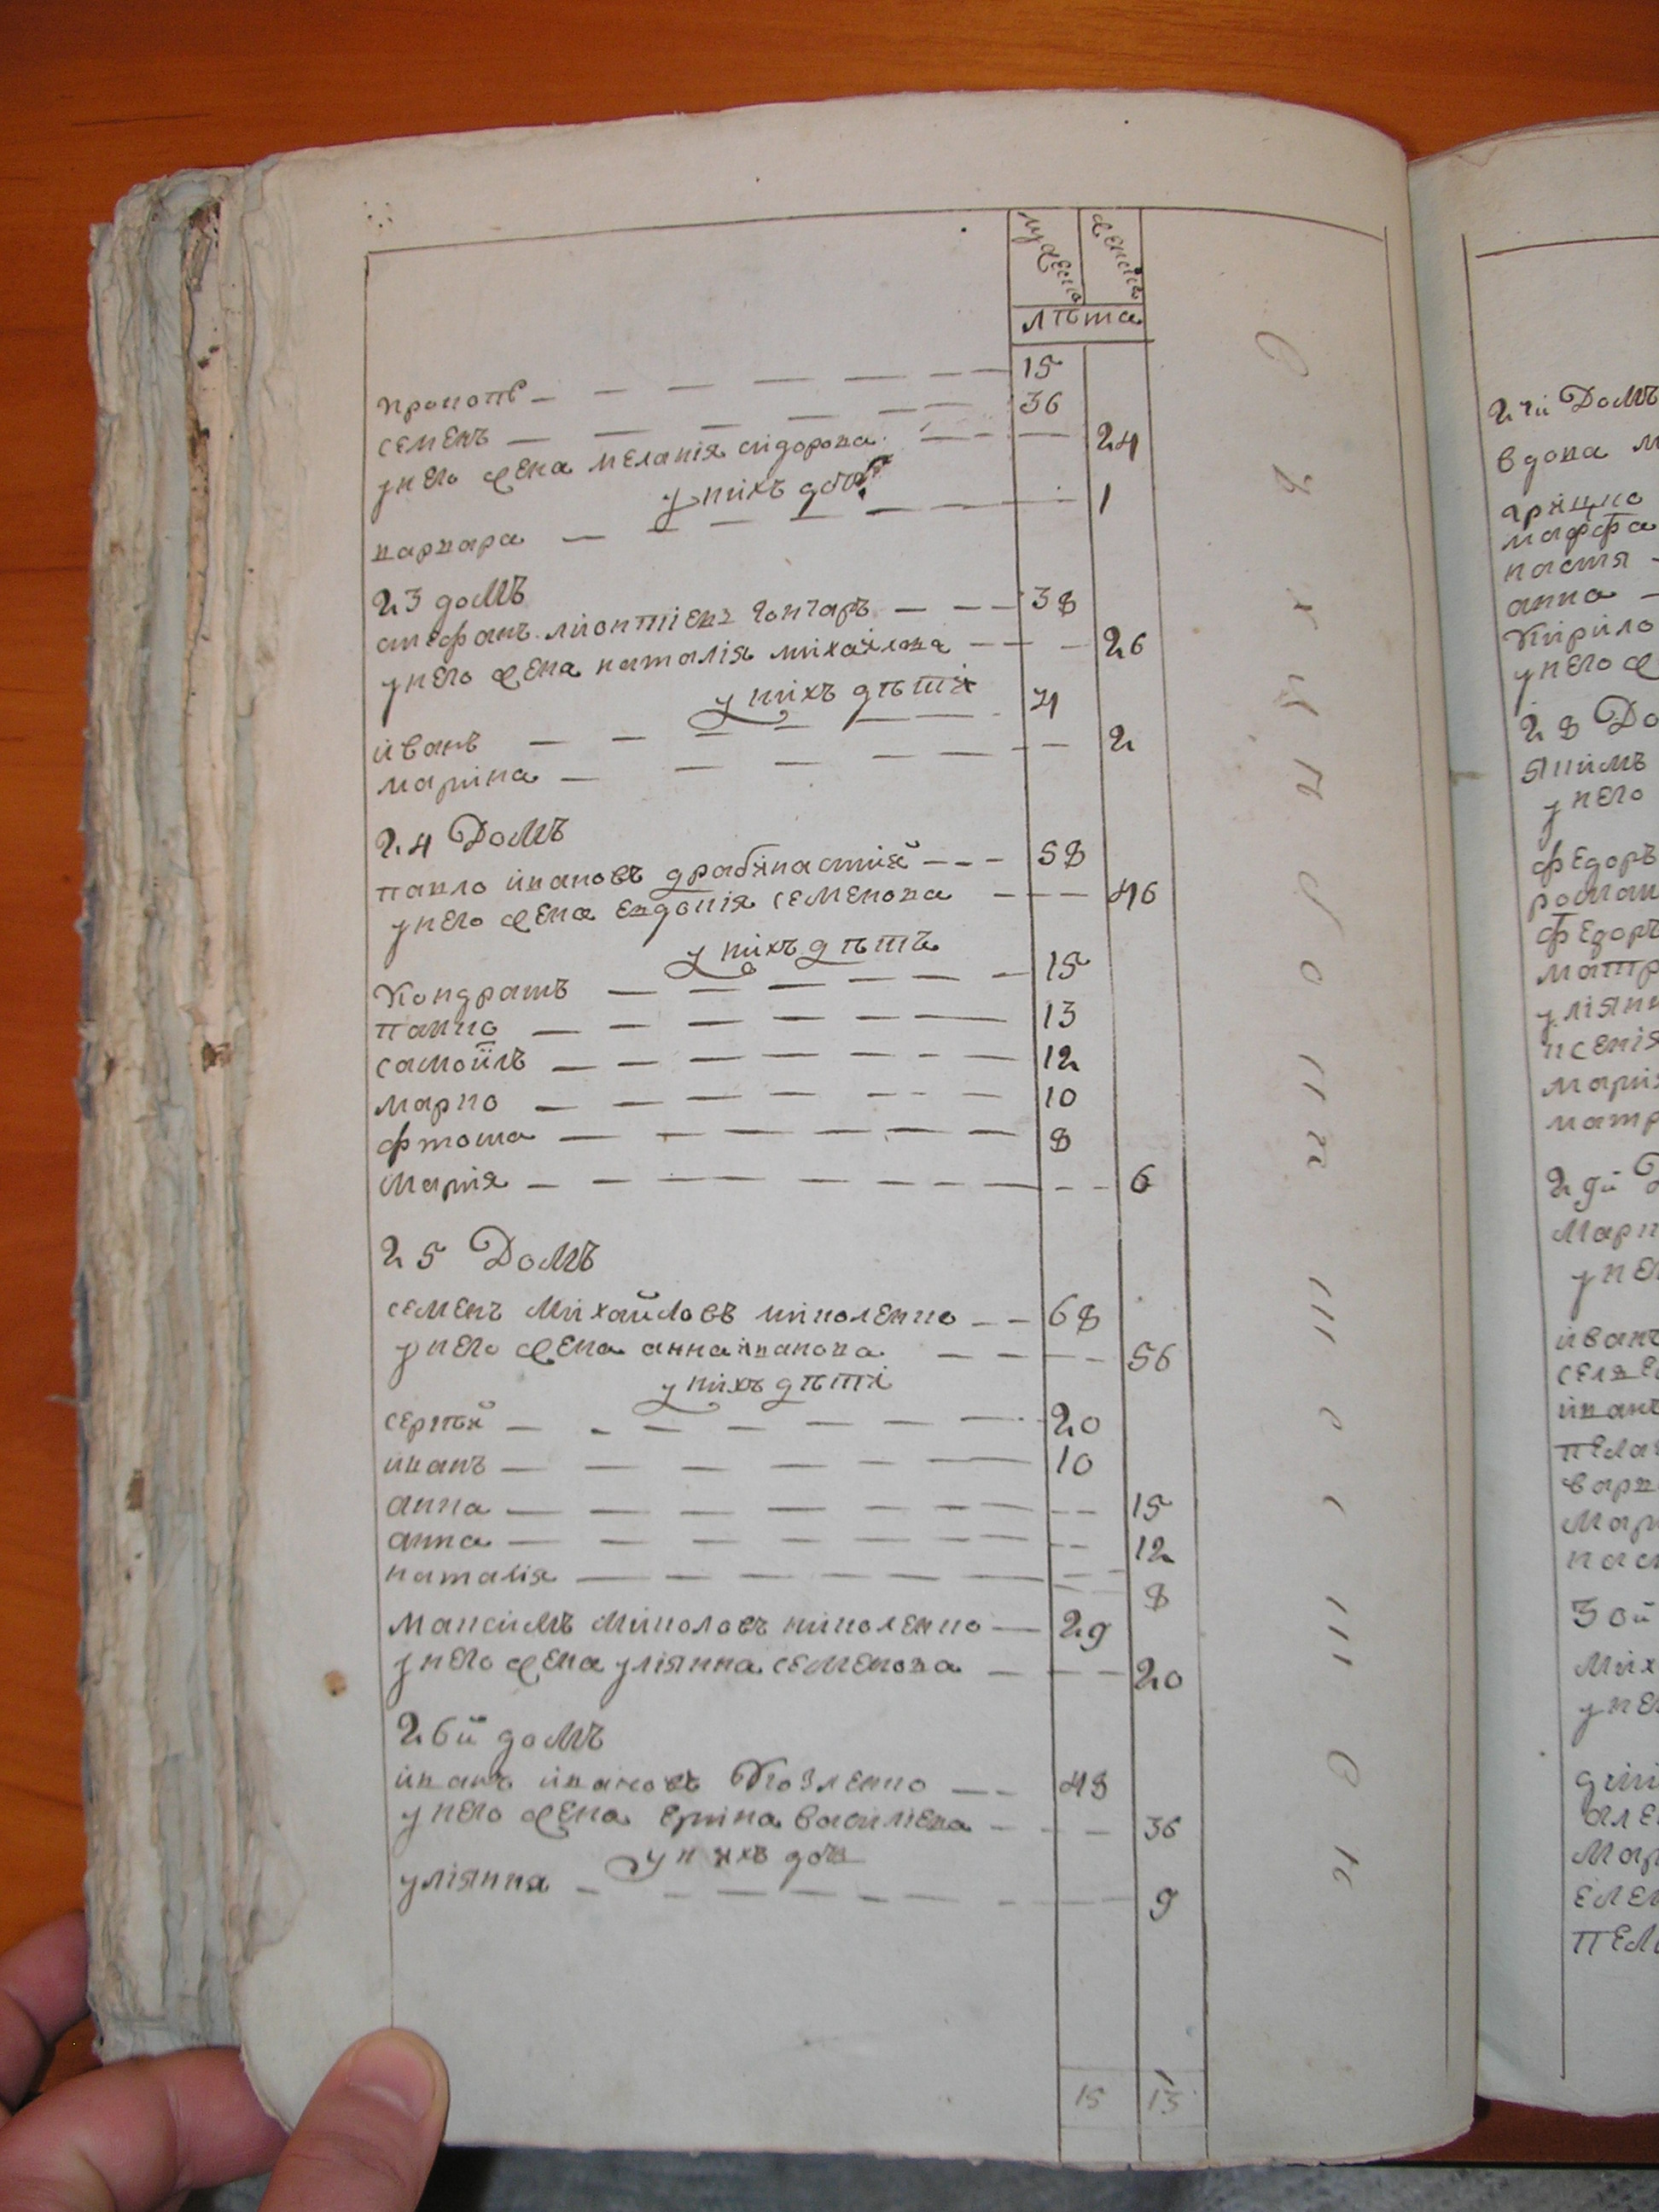 мужеска женска
лѣта
прокопъ 15
семенъ 36
у него жена меланія сидорова 24
у нихъ дочь
варвара 1
23 домъ
стефанъ лионтіевъ гончаръ 38
у него жена наталія михайлова 26
у нихъ дѣти
иванъ 4
марина 2
24 Домъ
павло ивановъ драбинастий 58
у него жена евдокія семенова 46
у нихъ дѣти
Кондратъ 15
панко 13
самойлъ 12
марко 10
фтома 8
марія 6
25 Домъ
семенъ Михайловъ миколенко 68
у него жена анна иванова 56
у нихъ дѣти
сергѣй 20
иванъ 10
анна 15
анна 12
наталія 8
максимъ миколовъ николенко 29
у него жена уліянна семенова 20
26й домъ
иванъ ивановъ Козленко 48
у него жена ерина василіева 36
у нихъ дочь
уліянна 9
15 13
27й Домъ
вдова
грицко
марфа
настя
анна
Кирило
у него
28 До
якимъ
у него
федоръ
роман
федоръ
матр
уліян
ксенія
марія
матр
29й
Марк
у не
иванъ
иванъ
пела
варв
Мар
нас
30й
Мих
у не
але
Мар
елен
пела